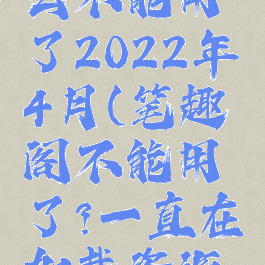 么不能用
了2022年
4月(笔趣
阁不能用
了?一直在
加载资源